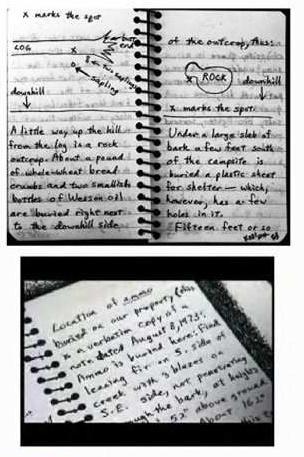 x marks the spot
burnt
end
LOG
x
5 or 6
saplings
sapling
downhill
A little way up the hill
from the log is a rock
outcrop. About a pound
of whole-wheat bread
crumbs and two smallish
bottles of Wesson oil
are buried right next
to the downhill side
of the outcrop, thus:
x
ROCK
downhill
x marks the spot.
Under a large slab of
bark a few feet south
of the campsite is
buried a plastic sheet
for shelter — which,
however, has a few
holes in it.
Fifteen feet or so
Location of ammo
buried on our property (this
is a verbatim copy of a
note dated August 8, 1973).
Ammo is buried here: Find
leaning fir on S. side of
creek with 3 blazes on
S.E. side, not penetrating
through the bark, at heights
52" above ground